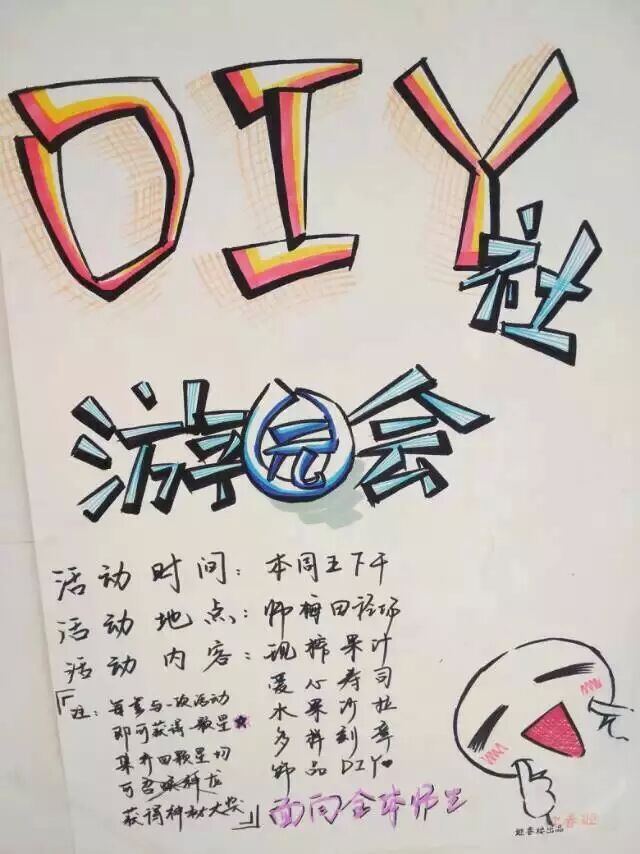 DIY社
游园会
活动时间：本周五下午
活动地点：师梅田径场
活动内容：现榨果汁
爱心寿司
水果沙拉
多样刻章
饰品DIY
「注：每参与一次活动
即可获得一颗星★
集齐四颗星切
可召唤神龙
获得神秘大奖」
面向全体师生
出品